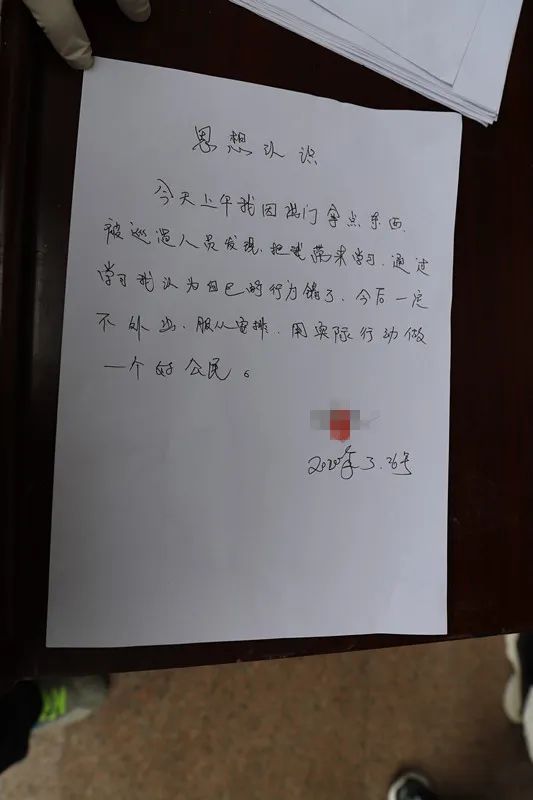 思想认识
今天上午我因门拿点东西.
被巡逻人员发现.把我带来学习.通过
学习我认为自己的行为错了.今后一定
不外出、服从安排.用实际行动做
一个好公民。
2020年3.26号